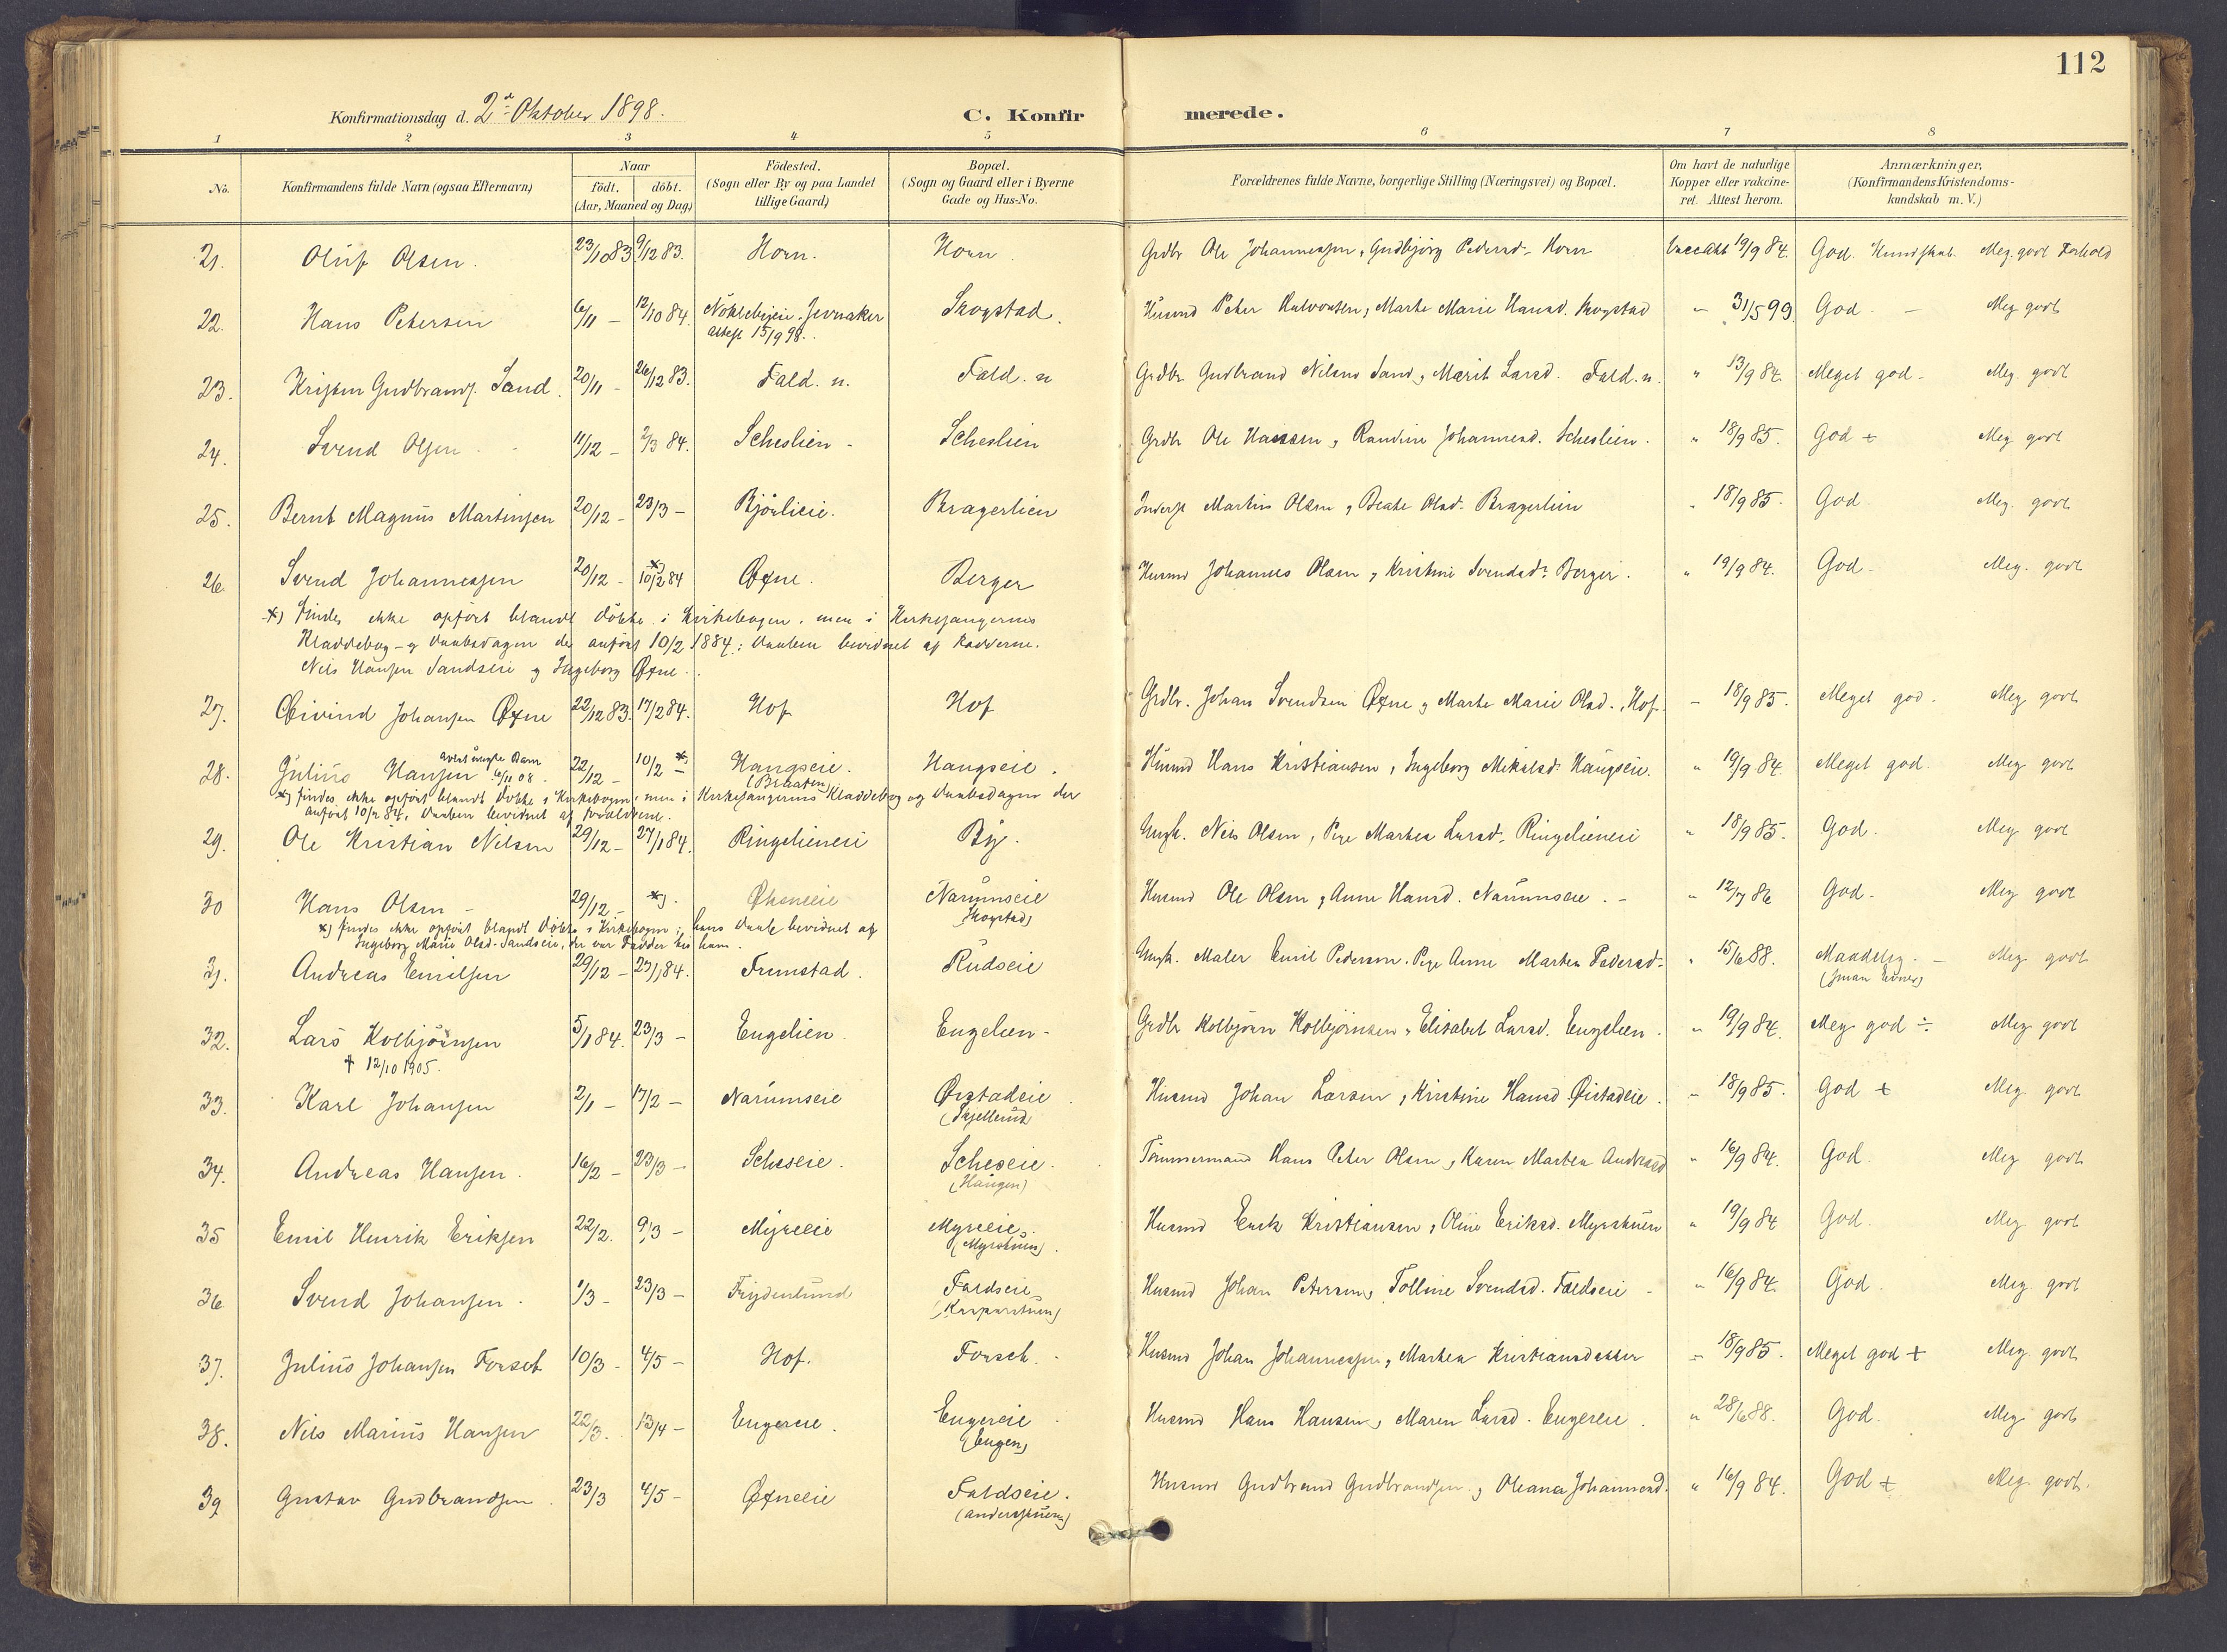 112
Konfirmationsdag d. 2den Oktober 1898.
C. Konfirmerede.
1 2 3 4 5 6 7 8
No.
Konfirmandens fulde Navn (ogsaa Efternavn)
Naar
födt. döbt.
(Aar, Maaned og Dag)
Födested.
(Sogn eller By og paa Landet
tillige Gaard)
Bopæl.
(Sogn og Gaard eller i Byerne
Gade og Hus-No.
Forældrenes fulde Navne, borgerlige Stilling (Næringsvei) og Bopæl.
Om havt de naturlige
Kopper eller vakcine-
ret. Attest herom.
Anmærkninger,
(Konfirmandens Kristendoms-
kundskab m. V.)
21. Oluf Olsen. 23/10 83 9/12 83. Horn. Horn. Grdbr Ole Johannessen, Gudbjörg Pedersd. Horn Vaccatt 19/9 84. God Kundskab. Meg. godt Forhold
22. Hans Petersen 6/11 – 12/10 84. Nöklebyeie. Jevnaker Skogstad. Husmd Peter Halvorsen, Marthe Marie Hansd. Skogstad " 31/5 99 God – Meg godt
attest 15/9 98.
23. Kristen Gudbrands. Sand. 20/11 – 26/12 83. Fald. n. Fald. n Grdbr Gudbrand Nilsen Sand, Marit Larsd. Fald. n. " 13/9 84. Meget god – Meg. godt
24. Svend Olsen. 11/12 – 2/3 84. Scheslien – Scheslien Grdbr Ole Hansen, Randine Johannesd. Scheslien. " 18/9 85. God + Meg godt
25. Bernt Magnus Martinsen 20/12 – 23/3 – Bjönlieie. Bragerlien Inderst Martin Olsen, Beate Olsd. Bragerlien " 18/9 85. God Meg. godt
26 Svend Johannessen 20/12 – *) 10/2 84 Øxne. Berger Husmd Johannes Olsen, Kristine Svendsd. Berger. " 19/9 84. God – Meg. godt
*) findes ikke opført blandt döbte i Kirkebogen, men i Kirkesangerens
Kladdebog – og daabsdagen der anført 10/2 1884.: daaben bevidnet af Fadderne.
Nils Hansen Sandseie og Ingeborg Øxne.
27. Eivind Johansen Øxne 22/12 83. 17/2 84. Hof Hof Grdbr. Johan Svendsen Øxne, Marte Marie Olsd. Hof. – 18/9 85. Meget god. Meg godt
28. Julius Hansen 22/12 – 10/2 *) – Haugseie. Haugseie. Husmd Hans Kristiansen, Ingeborg Mikelsd. Haugseie. " 19/9 84. Meget god. Meg godt
6/11 08. (Braaten)
*) findes ikke opført blandt döbte i Kirkebogen, men i Kirkesangerens Kladdebog og daabsdagen der
anført 10/2 84, daaben bevidnet af Forældrene.
29. Ole Kristian Nilsen 29/12 – 27/1 84. Ringelieneie By. Ungk. Nils Olsen, Pige Marthea Larsd. Ringelieneie " 18/9 85. God. Meg godt
30 Hans Olsen – 29/12 – *). Narumseie Husmd Ole Olsen, Anne Hansd. Narumseie. – " 12/7 86 God – Meg godt
(Skogstad)
*) findes ikke opført blandt döbte i Kirkebogen; hans daab bevidnet af
Ingeborg Marie Olsd. Sandseie, der var Fadder til ham.
31. Andreas Emilsen 29/12 – 27/1 84. Frimstad. Rudseie Ungk. Maler Emil Pedersen. Pige Anne Marthea Pedersd. " 15/6 88. Maadelig. – Meg godt
(smaa Evner)
32. Lars Kolbjörnsen 5/1 84. 23/3 – Engelien. Engelien – Grdbr Kolbjörn Kolbjörnsen, Elisabet Larsd. Engelien. " 19/9 84. Meg god ÷ Meg godt
† 12/10 1905.
33. Karl Johansen 2/1 – 17/2 – Narumseie Øistadeie. Husmd Johan Larsen, Kristine Hansd Øistadeie. " 18/9 85. God + Meg. godt
(Skjellerud)
34. Andreas Hansen. 16/2 – 23/3 – Scheseie. Scheseie. Tömmermand Hans Peter Olsen, Karen Marthea Andersd " 16/9 84. God. Meg godt
(Haugen)
35 Emil Henrik Eriksen 22/2. 9/3 – Myreeie Myreeie. Husmd Erik Kristiansen, Oline Eriksd. Myrstuen " 19/9 84 God. Meg godt
(Myrstuen).
36 Svend Johansen. 1/3 – 23/3 – Frydenlund Faldseie Husmd Johan Petersen, Polline Svendsd. Faldseie – " 16/9 84. God. Meg. godt
(Kasparstuen)
37. Julius Johansen Forset 10/3 – 4/5 – Hof. Forset. Husmd Johan Johannessen, Marthea Kristiansdatter " 18/9 85. Meget god + Meg. godt
38. Nils Marius Hansen 22/3. 13/4 – Engereie. Engereie Husmd Hans Hansen, Maren Larsd. Engereie. " 28/6 88. God. Meg godt
(Engen)
39 Gustav Gudbrandsen. 23/3 4/5 – Øxneeie Faldseie. Husmd Gudbrand Gudbrandsen, Oleana Johannesd. " 16/9 84. God + Meg. godt.
(Andersstuen)